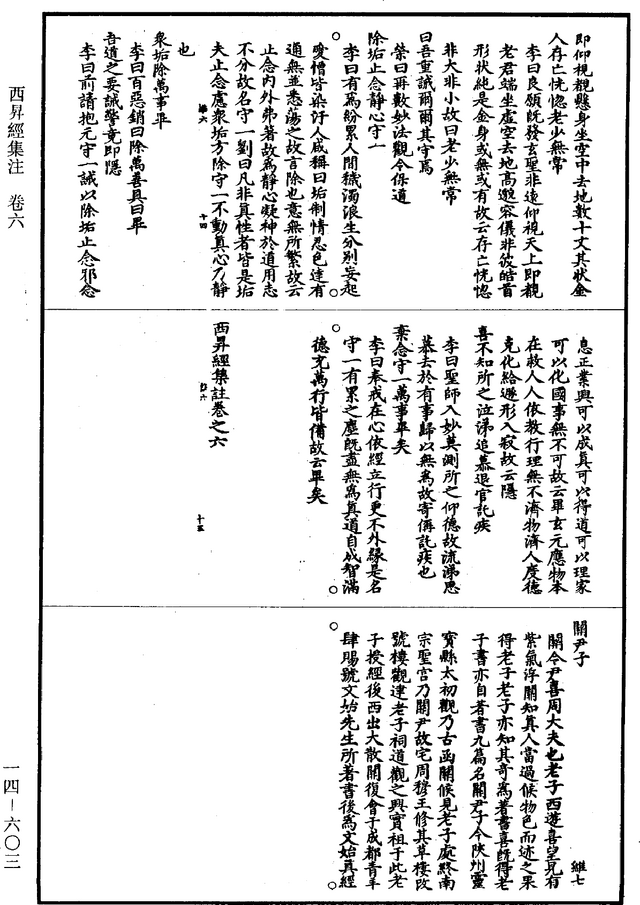 西昇經集注 卷六
一四—六〇三
即仰視覩懸身坐空中去地數十丈其狀金
人存亡恍惚老少無常
李曰良願既發玄聖非遠仰視天上即覩
老君端坐虛空去地高邈容儀非彼皓首
形狀純是金身或無或有故云存亡恍惚
非大非小故曰老少無常
曰吾重誡爾爾其守焉
榮曰再敷妙法觀令保道
除垢止念靜心守一
李曰有為紛累人間穢濁浪生分別妄起
愛憎皆染汙人咸稱曰垢制情忍色達有
通無並悉蕩之故言除也意無所繫故云
止念內外弗著故為靜心凝神於道用志
不分故名守一劉曰凡非真性者皆是垢
夫止念慮眾垢方除守一不動真心乃靜
也
眾垢除萬事畢
李曰百惡銷曰除萬善具曰畢
吾道之要誡警竟即隱
李曰前請抱元守一誡以除垢止念邪念
息正業興可以成真可以得道可以理家
可以化國事無不可故云畢玄元應物本
在救人人依教行理無不濟物濟人度德
克化給遯形入寂故云隱
喜不知所之泣涕追慕退官託疾
李曰聖師入妙莫測所之仰德故流涕思
慕去於有事歸以無為故寄偁託疾也
棄念守一萬事畢矣
李曰奉戒在心依經立行更不外緣是名
守一有累之塵既盡無為真道自成智滿
德充萬行皆備故云畢矣
西昇經集註卷之六
十五
關尹子
維七
關令尹喜周大夫也老子西遊喜望見有
紫氣浮關知真人當過候物色而迹之果
得老子老子亦知其奇為著書喜既得老
子書亦自著書九篇名關尹子今陝州靈
寶縣太初觀乃古函關候見老子處終南
宗聖宮乃關尹故宅周穆王修其草樓改
號樓觀建老子祠道觀之興實祖于此老
子授經後西出大散關復會于成都青羊
肆賜號文始先生所著書後為文始真經